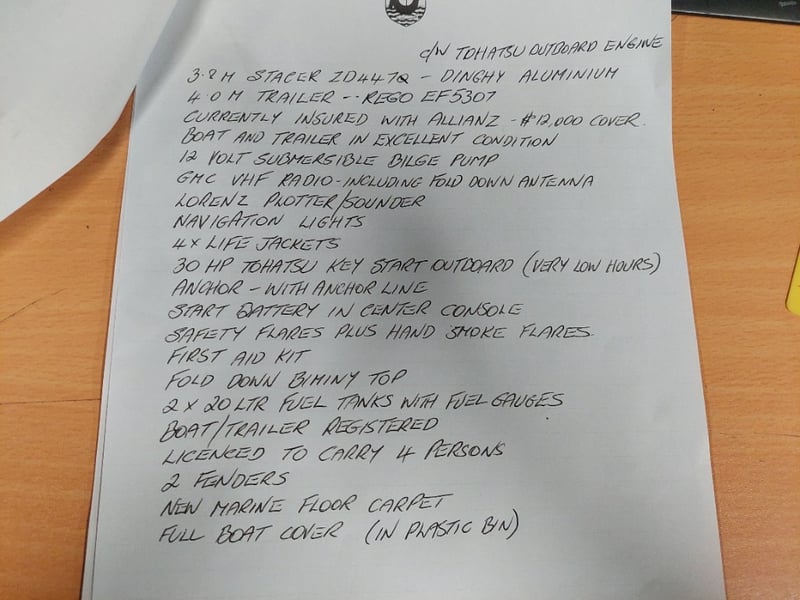 c/w TOHATSU OUTBOARD ENGINE
3.8 M STACER ZD447Q - DINGHY ALUMINIUM
4.0 M TRAILER -- REGO EF5307
CURRENTLY INSURED WITH ALLIANZ - $12,000 COVER.
BOAT AND TRAILER IN EXCELLENT CONDITION
12 VOLT SUBMERSIBLE BILGE PUMP
GMC VHF RADIO - INCLUDING FOLD DOWN ANTENNA
LORENZ PLOTTER/SOUNDER
NAVIGATION LIGHTS
4 x LIFE JACKETS
30 HP TOHATSU KEY START OUTBOARD (VERY LOW HOURS)
ANCHOR - WITH ANCHOR LINE
START BATTERY IN CENTER CONSOLE
SAFETY FLARES PLUS HAND SMOKE FLARES.
FIRST AID KIT
FOLD DOWN BIMINY TOP
2 x 20 LTR FUEL TANKS WITH FUEL GAUGES
BOAT/TRAILER REGISTERED
LICENCED TO CARRY 4 PERSONS
2 FENDERS
NEW MARINE FLOOR CARPET
FULL BOAT COVER (IN PLASTIC BIN)